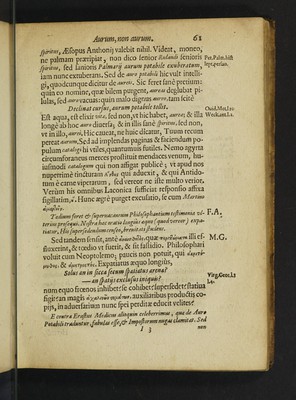 Aurum, non aurum. 61
spiritus, Æsopus Anthonij valebit nihil. Videat, moneo,
ne palmam præripiat, non dico senior
spiritus, sed senioris Palmarij aurum potabile exuberatum,
iam nunc exuberans. Sed de auro potabili hic vult intelli-
gi, quodcunque dicitur de aureis. Sic feret sanè pretium:
quin eo nomine, quæ bilem purgent, aureas deglubat pi-
lulas, sed auro vacuas: quin malo dignus aureo, tam scite
Declinat cursus, aurumque potabile tollit.
Est aqua, est elixir vitæ, sed non, vt hic habet, aureæ; & illa
longè ab hoc auro diuersa; & in illis sanè spiritus, sed non,
vt in illo, aurei, Hic caueat, ne huic dicatur, Tuum tecum
pereat aurum. Sed ad implendas paginas & faciendum po-
pulum catalogi hi vtiles, quantumuis futiles. Nemo agyrta
circumforaneus merces prostituit mendices venum, ba-
iusmodi catalogum qui non affigat publicè; vt apud nos
nuperrimè tincturam qui aduexit, & qui Antido-
tum è carne viperarum, sed vereor ne iste multo verior.
Verùm his omnibus Laconica sufficiat responsio affixa
sigillatim, Hunc argò purget excusatio, se cum Martino
F.A.
Tædium foret & superuacaneum Philosophantium testimonia vl-
terius prosequi. Nostra hac oratio longius aquo (quod vereor) expa-
tiatur. His supersedendum censeo, breuitatis studens.
M.G.
Sed tandem sensit, ante quàm illi ef-
fluxerint, & tædio vt fuerit, & sit fastidio. Philosophari
voluit cum Neoptolemo; paucis non potuit, qui
& Expatiatus æquo longius,
Solus an in sicca secum spatiatus arena?
—an spatijs exclusus iniquis?
num equo frœnos inhibet? se cohibet? supersedet? statiua
figit? an magis auxiliaribus productis co-
pijs, in aduersarium nunc spei perditæ educit velites?
E contra Erastus Medicus alioquin celeberrimus, qua de Auro
Potabili traduntur, fabulas esse, & Impostorum nugas clamitat. Sed
I 3 non